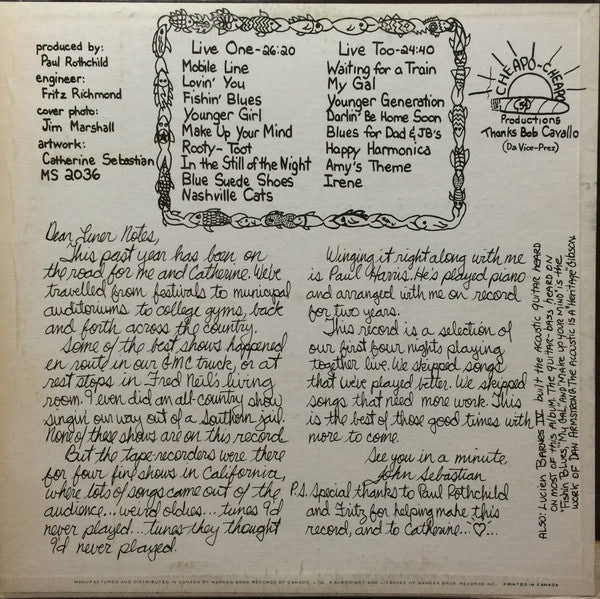 produced by:
Paul Rothchild
engineer:
Fritz Richmond
cover photo:
Jim Marshall
artwork:
Catherine Sebastian
MS 2036
Live One-26:20
Mobile Line
Lovin' You
Fishin' Blues
Younger Girl
Make Up Your Mind
Rooty-Toot
In the Still of the Night
Blue Suede Shoes
Nashville Cats
Live Too-24:40
Waiting for a Train
My Gal
Younger Generation
Darlin' Be Home Soon
Blues for Dad & JB's
Happy Harmonica
Amy's Theme
Irene
CHEAPO-CHEAPO
Productions
Thanks Bob Cavallo
(Da Vice-Prez)
Dear Liner Notes,
This past year has been on
the road for me and Catherine. We've
travelled from festivals to municipal
auditoriums to college gyms, back
and forth across the country.
Some of the best shows happened
en route in our GMC truck, or at
rest stops in Fred Neil's living
room. I even did an all-country show
singin' our way out of a Southern jail.
None of these shows are on this record.
But the tape recorders were there
for four fine shows in California,
where lots of songs came out of the
audience... weird oldies... tunes I'd
never played... tunes they thought
I'd never played.
Winging it right along with me
is Paul Harris. He's played piano
and arranged with me on record
for two years.
This record is a selection of
our first four nights playing
together live. We skipped songs
that we've played better. We skipped
songs that need more work. This
is the best of those good times with
more to come.
See you in a minute,
John Sebastian
P.S. Special thanks to Paul Rothchild
and Fritz for helping make this
record, and to Catherine...♡...
ALSO: LUCIEN BARNES IV built the ACOUSTIC guitar HEARD
ON MOST OF THIS ALBUM. THE GUITAR-BASS HEARD ON
"Fishin' BLUES", "MY GAL" AND "MAKE UP YOUR MIND" IS THE
WORK OF DAN ARMSTRONG. THE ACOUSTIC IS A "HERITAGE" GIBSON.
MANUFACTURED AND DISTRIBUTED IN CANADA BY WARNER BROS RECORDS OF CANADA, LTD., A SUBSIDIARY AND LICENSEE OF WARNER BROS RECORDS INC. PRINTED IN CANADA